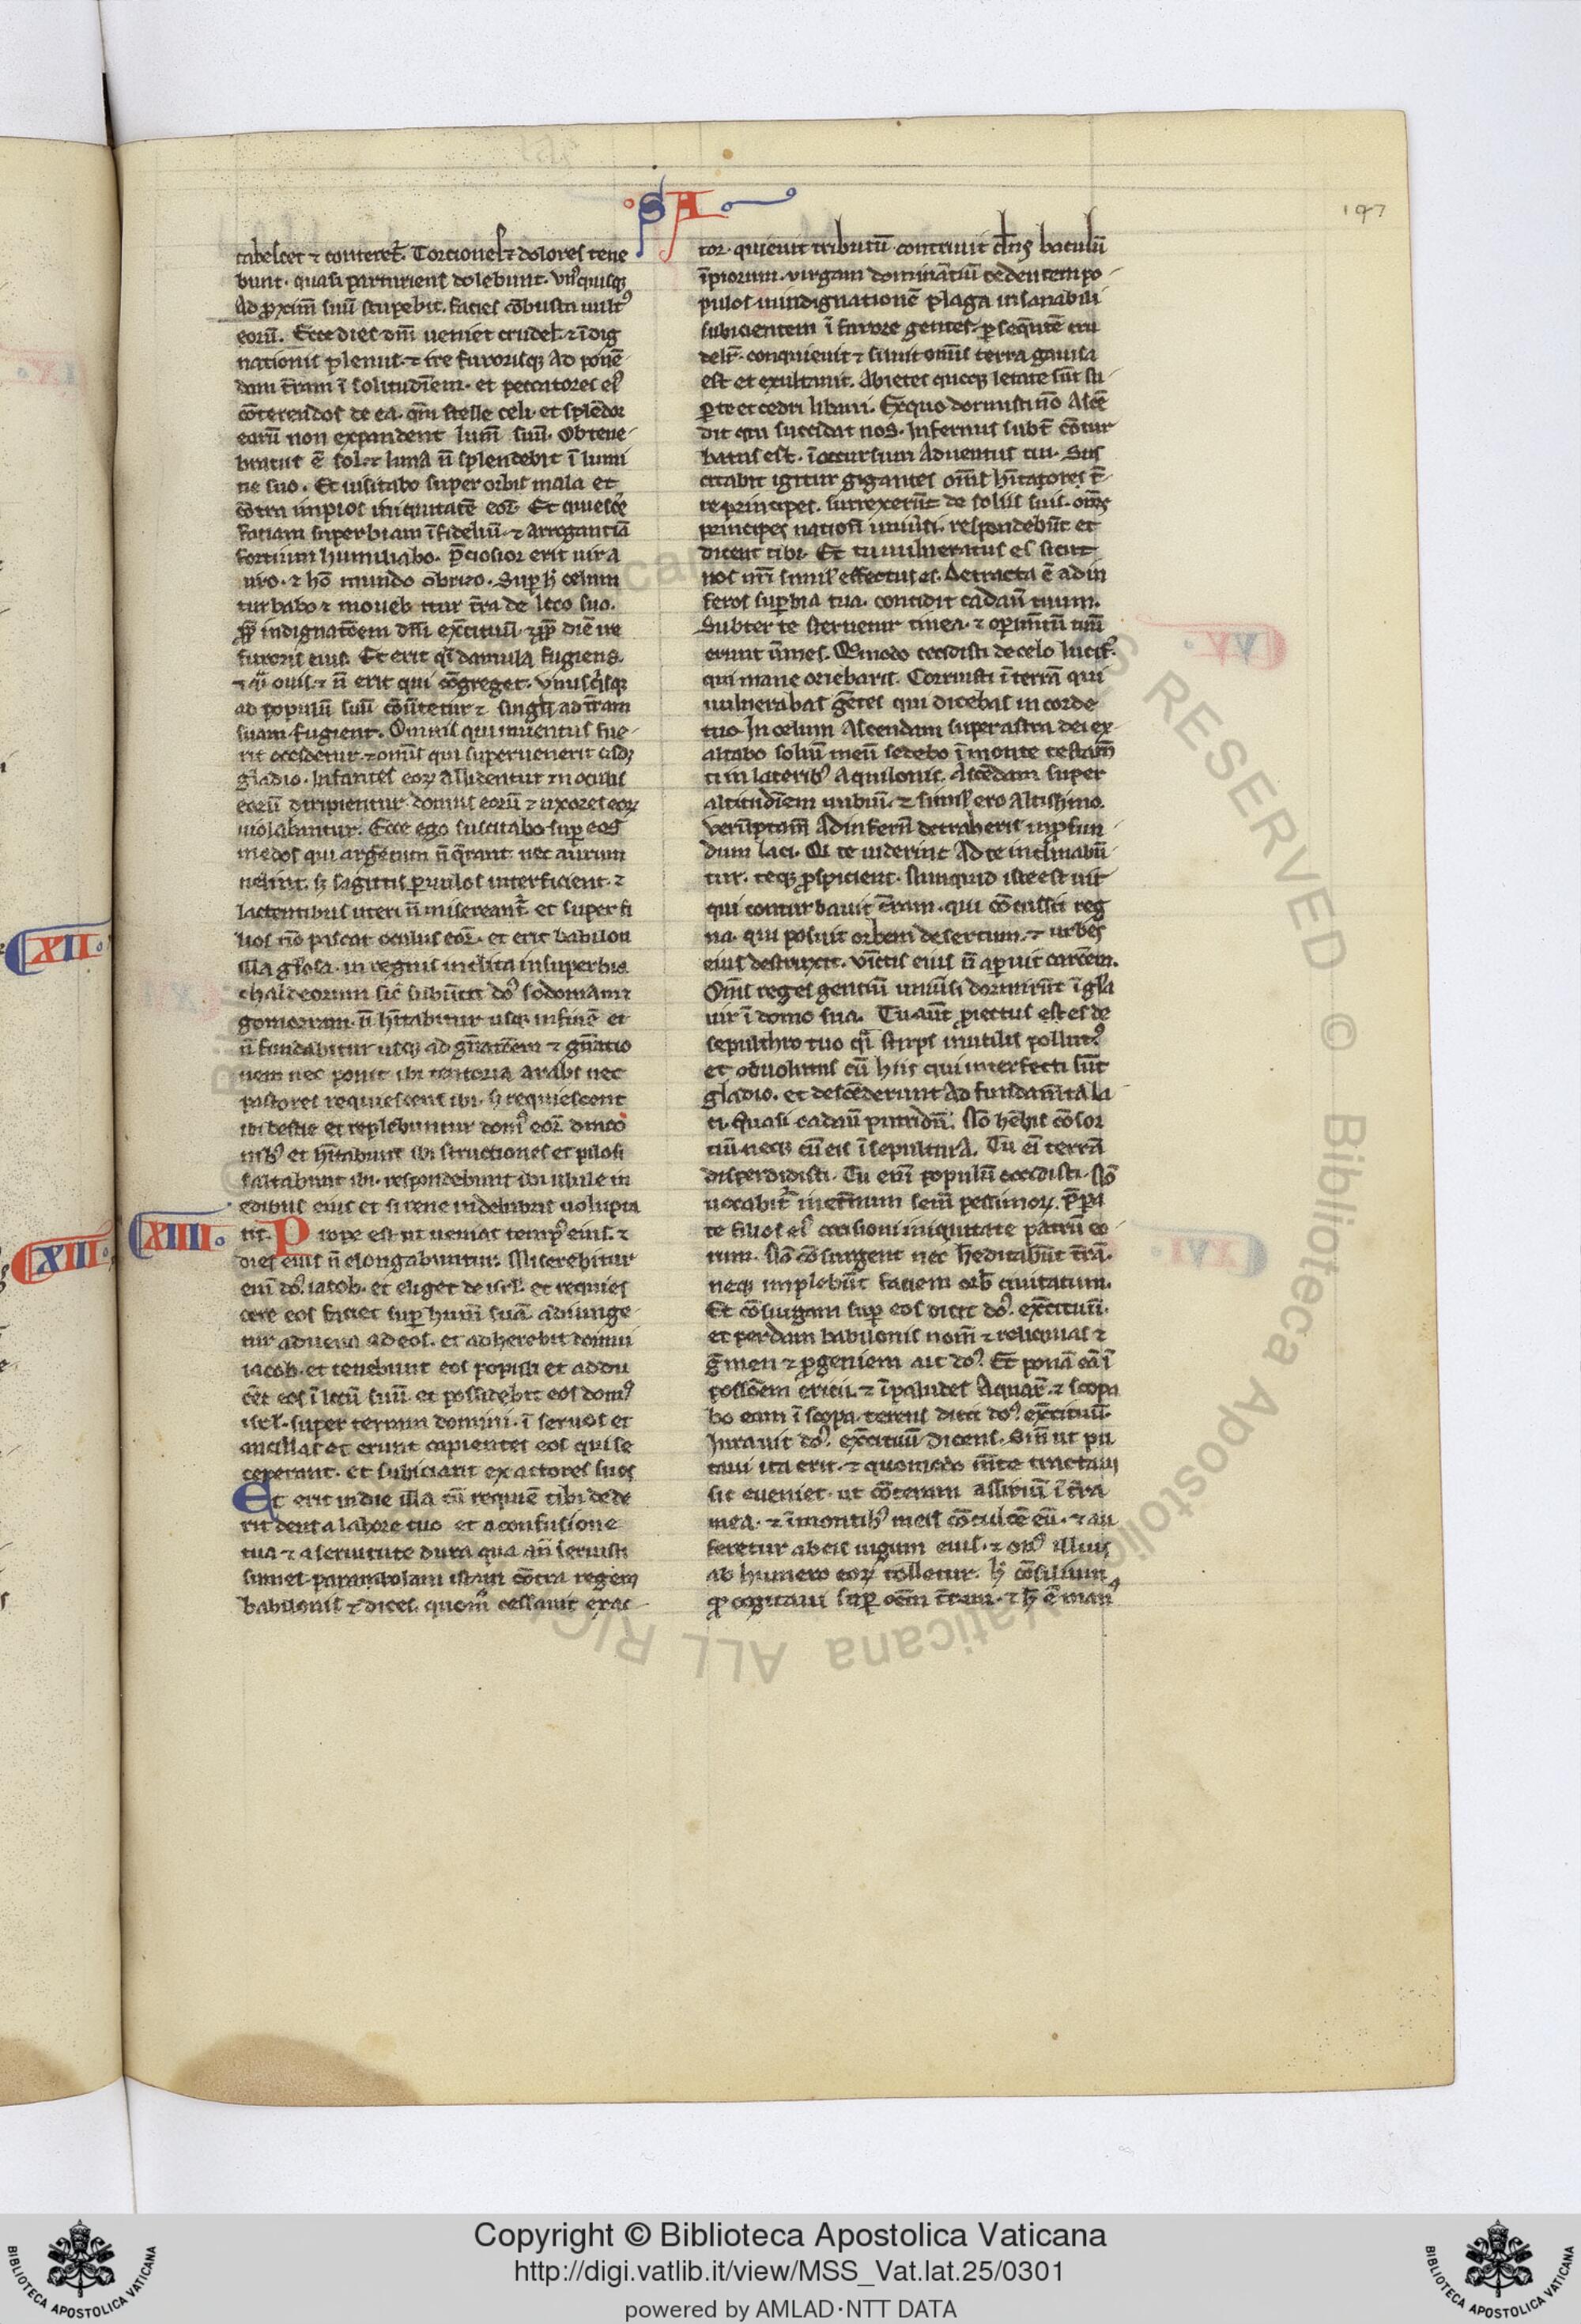 SA
197
tabescet ⁊ conteret᷑. Torciones ⁊ dolores tene
bunt. quasi parturiens dolebunt. vn᷒quisq;
ad ꝓximū suū stupebit. facies cōbusta uult᷒
eorū. Ecce dies dn̄i ueniet crudel᷑. ⁊ īdig
nationis plenus. ⁊ ire furorisq; ad ponē
dam t̄ram ī solitudīem. et peccatores ei᷒
cōterendos de ea. qm̄ stelle celi. et splēdor
earū non expandent lum̄ suū. Obtene
bratus ē sol. ⁊ luna n̄ splendebit ī lumi
ne suo. Et uisitabo super orbis mala et
cōtra impios iniquitatē eoꝝ. Et quiesc̄e
faciam superbiam īfideliū. ⁊ arrogantiā
fortium humiliabo. p̄ciosior erit uir a
uro. ⁊ hō mundo obrizo. Sup h̄ celum
turbabo ⁊ moueb itur t̄ra de loco suo.
ꝓp̄ indignatōem dn̄i exc̄ituū. ⁊ ꝓp̄ diē ire
furoris eius. Et erit q̄i damula fugiens.
⁊ q̄i ouis. ⁊ n̄ erit qui cōgreget. vnusq̄sq;
ad populū suū cōūtetur ⁊ singl̄i ad t̄ram
suam fugient. Omnis qui inuentus fue
rit occidetur. ⁊ omīs qui superuenerit cadꝫ
gladio. Infantes eoꝝ allidentur in oculis
eorū diripientur domus eorū ⁊ uxores eoꝝ
uiolabuntur. Ecce ego suscitabo sup eos
medos qui argentum n̄ q̄rant nec aurum
uelint. sꝫ sagittis paruulos interficient. ⁊
lactentibus uteri n̄ misereant᷑. et super fi
lios nō parcat oculus eoꝝ. et erit babilon
illa gl̄osa. in regnis inclita in superbia
chaldeorum sic̄ subūtit dō᷒ sodomam ⁊
gomorram. n̄ hītabitur usq; in finē et
n̄ fundabitur usq; ad gn̄atōem ⁊ gn̄atio
nem nec ponit ibi tentoria arabs nec
pastores requiescent ibi. sꝫ requiescent
ibi bestie et replebuntur dom᷒ eoꝝ draco
nib᷒ et hītabunt ibi structiones et pilosi
saltabunt ibi. respondebunt ibi ulule in
edibus eius et sirene in delubris uolupta
XII
XIII
XIIII
tis. Prope est ut ueniat temp᷒ eius. ⁊
dies eius n̄ elongabuntur. Miserebitur
eni dō᷒. iacob. et eliget de isrl̄. et requies
cere eos faciet sup humū suā. adiunge
tur aduena ad eos. et adherebit domui
iacob. et tenebunt eos populi et addu
cēt eos ī locū suū. et possidebit eos dom᷒
isrl̄. super terram domini. ī seruos et
ancillas et erunt capientes eos qui se
ceperant. et subicient exactores suos
Et erit in die illa cū requiē tibi dede
rit deus a labore tuo et a confusione
tua ⁊ a seruitute dura qua an̄ seruisti
sumes parabolam istam cōtra regem
babilonis ⁊ dices. quom̊ cessauit exac
tor. quieuit tributū. contriuit dn̄s baculū
īpiorum. virgam dominātiū cedentem po
pulos in indignationē plaga insanabili
subicientem ī furore gentes. psequētē cru
delr̄. conquieuit ⁊ siluit omīs terra gauisa
est et exultauit. Abietes quoq; letate sūt su
p te et cedri libani. Ex quo dormisti nō Ascē
dit qui succidat nos. Infernus subt᷑ cōtur
batus est. ī occursum aduentus tui. Sus
citabit igitur gigantes omīs hītatores t̄
re principes. surrexerūt de soliis suis. om̄s
principes nationū uniu̇si. respondebūt et
dicent tibi. Et tu uulneratus es sicut
nos nr̄i simil᷒ effectus es. Detracta ē ad in
feros supbia tua. concidit cadau̇ tuum.
Subter te sternetur tinea. ⁊ opimētū tuū
erunt v̄mes. Qm̊odo cecidisti de celo lucif᷑.
qui mane oriebaris. Corruisti ī terrā qui
uulnerabas ḡetes qui dicebas in corde
tuo. In celum Ascendam super astra dei ex
altabo soliū meū sedebo ī monte testam̄
ti in laterib᷒ Aquilonis. Ascēdam super
altitudīem nubiū. ⁊ simil᷒ ero Altissimo.
Verūptam̄ Ad infernū detraheris in ꝓfun
dum laci. Qi te uiderint Ad te inclinabū
tur. teq; ꝓspicient. Nunquid iste est uir
qui conturbauit t̄ram. qui cōcussit reg
na. qui posuit orbem desertum. ⁊ urbes
eius destruxit. vinctis eius n̄ apuit carcem.
Om̄s reges gentiū uniu̇si dormierūt ī gl̄a
uir ī domo sua. Tu aut̄ ꝓiectus est es de
sepulchro tuo q̄i stirps inutilis pollut᷒
et obuolutus cū hiis qui interfecti sūt
gladio. et descēderunt Ad fundam̄ta la
ci. Quasi cadau̇ putridū. Nō hēbis cōsor
tiū neq; cū eis ī sepultura. Tu ei᷒ terrā
disperdidisti. Tu eni populū occidisti. Nō
uocabit᷑ in et̄num sem̄ pessimoꝝ. P̄pa
te filios ei᷒ occisioni iniquitate patrū eo
rum. Nō cōsurgent nec h̄editabūt t̄rā.
neq; implebūt faciem orb̄ ciuitatum.
Et cōsurgam sup eos dicit dō᷒. exc̄ituū.
et perdam babilonis nom̄ ⁊ reliquias ⁊
ḡmen ⁊ ꝓgeniem ait dō᷒. Et ponā eā ī
possōem ericii. ⁊ ī paludes Aquaꝝ. ⁊ scopa
bo eam ī scopa. terens dicit dō᷒. exc̄ituū.
Iurauit dō᷒. exc̄ituū dicens. Sin̄ ut pu
taui ita erit. ⁊ quomodo m̄te tractaui
sic eueniet. ut cōteram assiriū ī t̄ra
mea. ⁊ ī montib᷒ meis cōculcē eū. ⁊ au
feretur ab eis iugum eius. ⁊ on᷒ illius
ab humero eoꝝ tolletur. h̄ cōsilium
q̄ cogitaui sup oēm t̄ram. ⁊ h̄ ē man
Copyright © Biblioteca Apostolica Vaticana
http://digi.vatlib.it/view/MSS_Vat.lat.25/0301
powered by AMLAD·NTT DATA
BIBLIOTECA APOSTOLICA VATICANA
BIBLIOTECA APOSTOLICA VATICANA